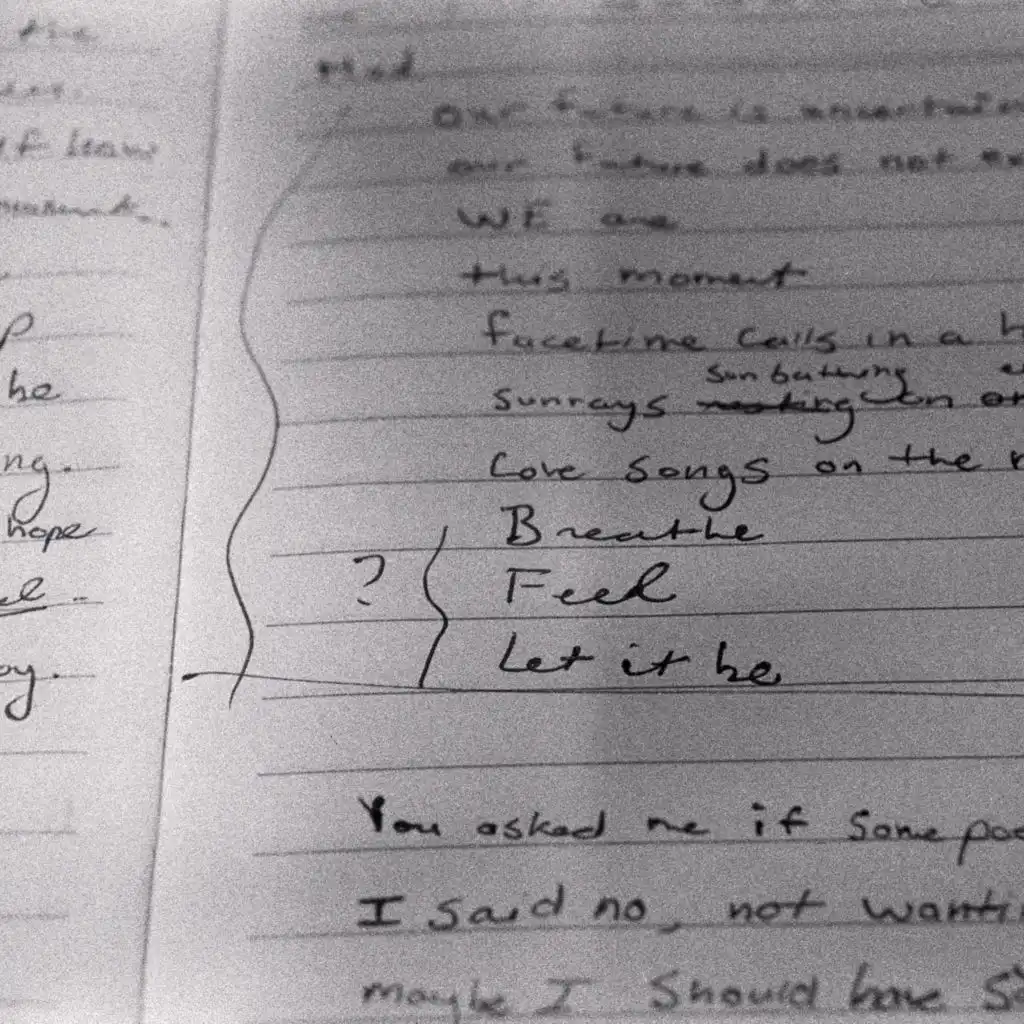 the
if leave
he
ng.
hope
oy.
our future is uncertain
our future does not ex
WE are
this moment
facetime calls in a h
sunbathing
sunrays on
Love songs on the r
Breathe
?
Feel
Let it be
You asked me if some poe
I said no, not wanti
maybe I should have s